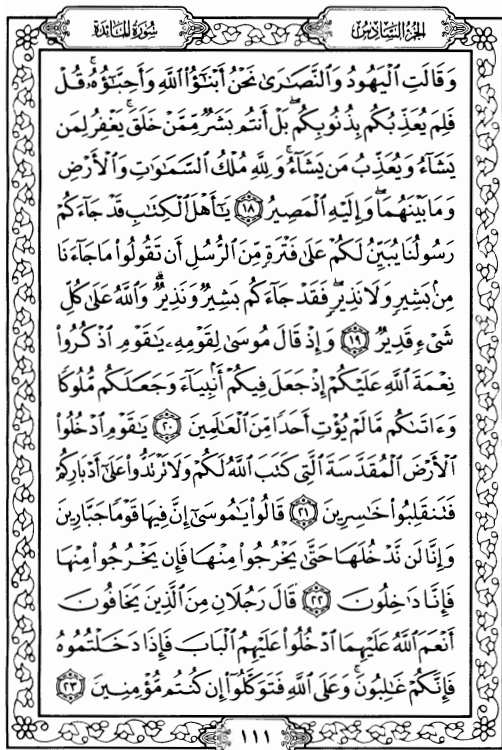 الجزء السادس
سورة المائدة
وَقَالَتِ الْيَهُودُ وَالنَّصَارَىٰ نَحْنُ أَبْنَاؤُا اللَّهِ وَأَحِبَّاؤُهُ ۚ قُلْ
فَلِمَ يُعَذِّبُكُم بِذُنُوبِكُم ۖ بَلْ أَنتُم بَشَرٌ مِّمَّنْ خَلَقَ ۚ يَغْفِرُ لِمَن
يَشَاءُ وَيُعَذِّبُ مَن يَشَاءُ ۚ وَلِلَّهِ مُلْكُ السَّمَاوَاتِ وَالْأَرْضِ
وَمَا بَيْنَهُمَا ۖ وَإِلَيْهِ الْمَصِيرُ ١٨ يَا أَهْلَ الْكِتَابِ قَدْ جَاءَكُمْ
رَسُولُنَا يُبَيِّنُ لَكُمْ عَلَىٰ فَتْرَةٍ مِّنَ الرُّسُلِ أَن تَقُولُوا مَا جَاءَنَا
مِن بَشِيرٍ وَلَا نَذِيرٍ ۖ فَقَدْ جَاءَكُم بَشِيرٌ وَنَذِيرٌ ۗ وَاللَّهُ عَلَىٰ كُلِّ
شَيْءٍ قَدِيرٌ ١٩ وَإِذْ قَالَ مُوسَىٰ لِقَوْمِهِ يَا قَوْمِ اذْكُرُوا
نِعْمَةَ اللَّهِ عَلَيْكُمْ إِذْ جَعَلَ فِيكُمْ أَنبِيَاءَ وَجَعَلَكُم مُّلُوكًا
وَءَاتَاكُم مَّا لَمْ يُؤْتِ أَحَدًا مِّنَ الْعَالَمِينَ ٢٠ يَا قَوْمِ ادْخُلُوا
الْأَرْضَ الْمُقَدَّسَةَ الَّتِي كَتَبَ اللَّهُ لَكُمْ وَلَا تَرْتَدُّوا عَلَىٰ أَدْبَارِكُمْ
فَتَنقَلِبُوا خَاسِرِينَ ٢١ قَالُوا يَا مُوسَىٰ إِنَّ فِيهَا قَوْمًا جَبَّارِينَ
وَإِنَّا لَن نَّدْخُلَهَا حَتَّىٰ يَخْرُجُوا مِنْهَا فَإِن يَخْرُجُوا مِنْهَا
فَإِنَّا دَاخِلُونَ ٢٢ قَالَ رَجُلَانِ مِنَ الَّذِينَ يَخَافُونَ
أَنْعَمَ اللَّهُ عَلَيْهِمَا ادْخُلُوا عَلَيْهِمُ الْبَابَ فَإِذَا دَخَلْتُمُوهُ
فَإِنَّكُمْ غَالِبُونَ ۚ وَعَلَى اللَّهِ فَتَوَكَّلُوا إِن كُنتُم مُّؤْمِنِينَ ٢٣
١١١